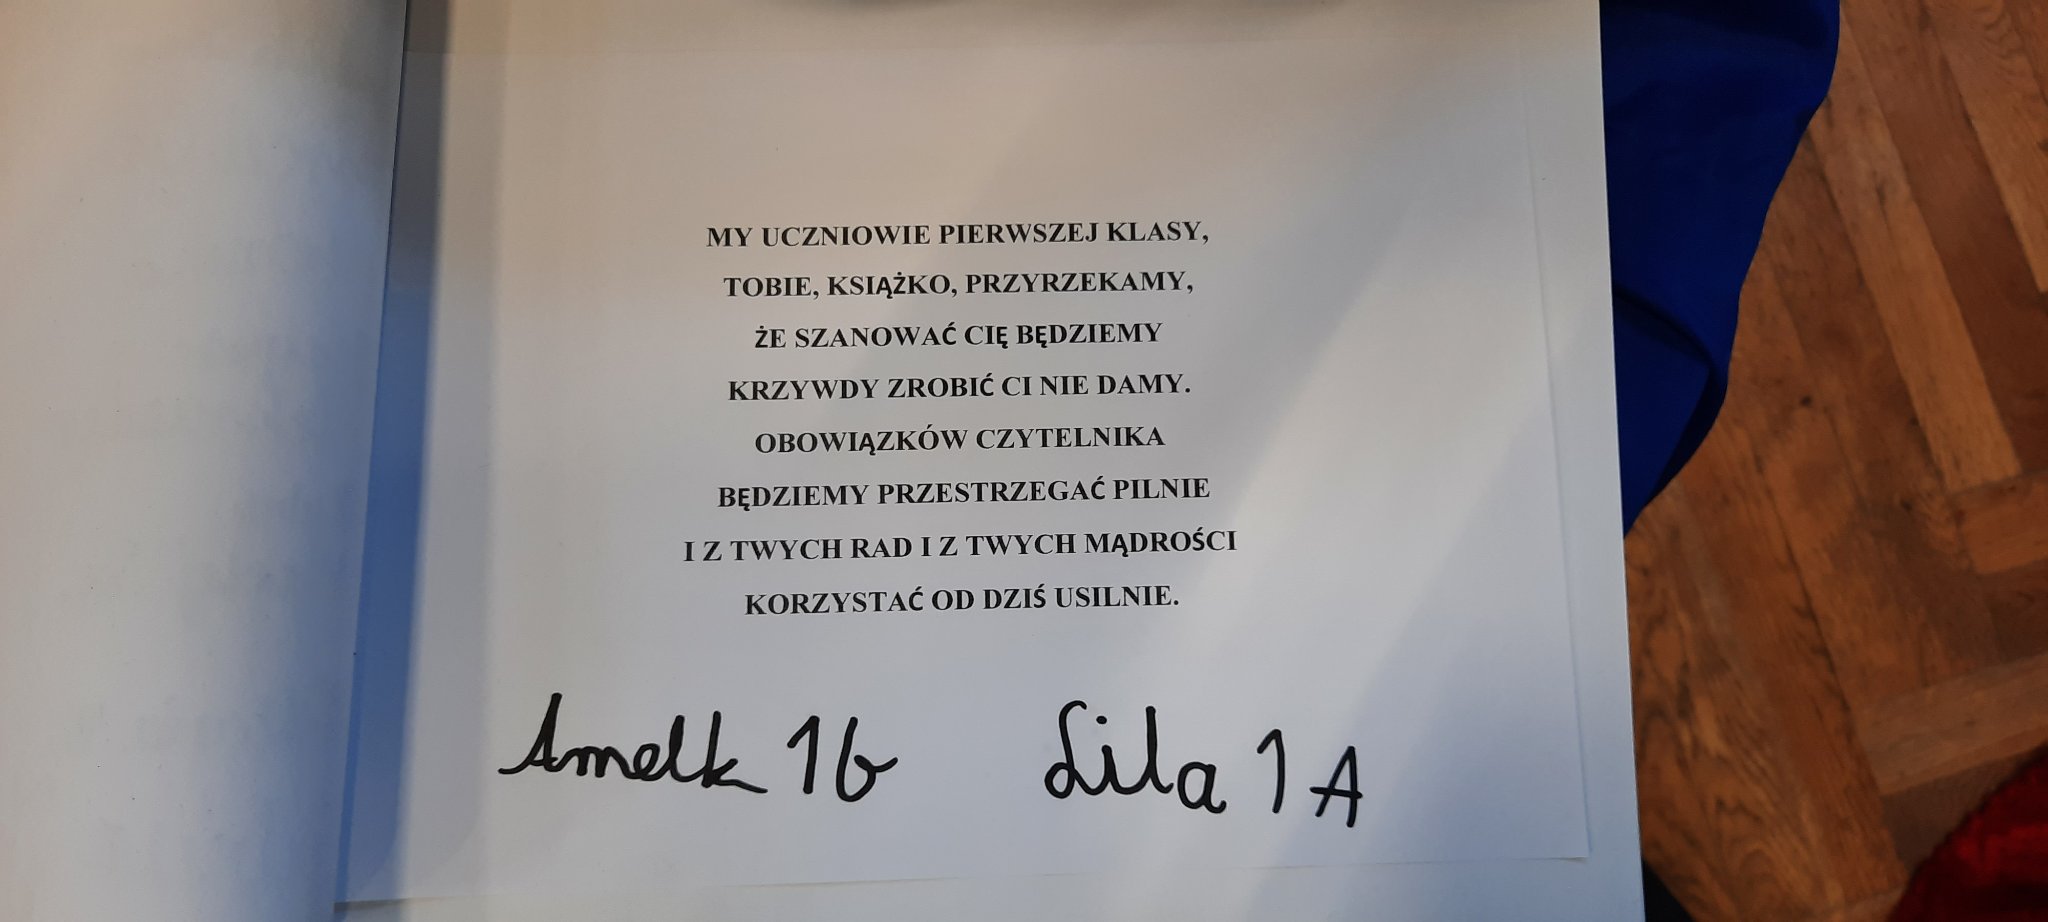 MY UCZNIOWIE PIERWSZEJ KLASY,
TOBIE, KSIĄŻKO, PRZYRZEKAMY,
ŻE SZANOWAĆ CIĘ BĘDZIEMY
KRZYWDY ZROBIĆ CI NIE DAMY.
OBOWIĄZKÓW CZYTELNIKA
BĘDZIEMY PRZESTRZEGAĆ PILNIE
I Z TWYCH RAD I Z TWYCH MĄDROŚCI
KORZYSTAĆ OD DZIŚ USILNIE.
Amelk 1b Lila 1A